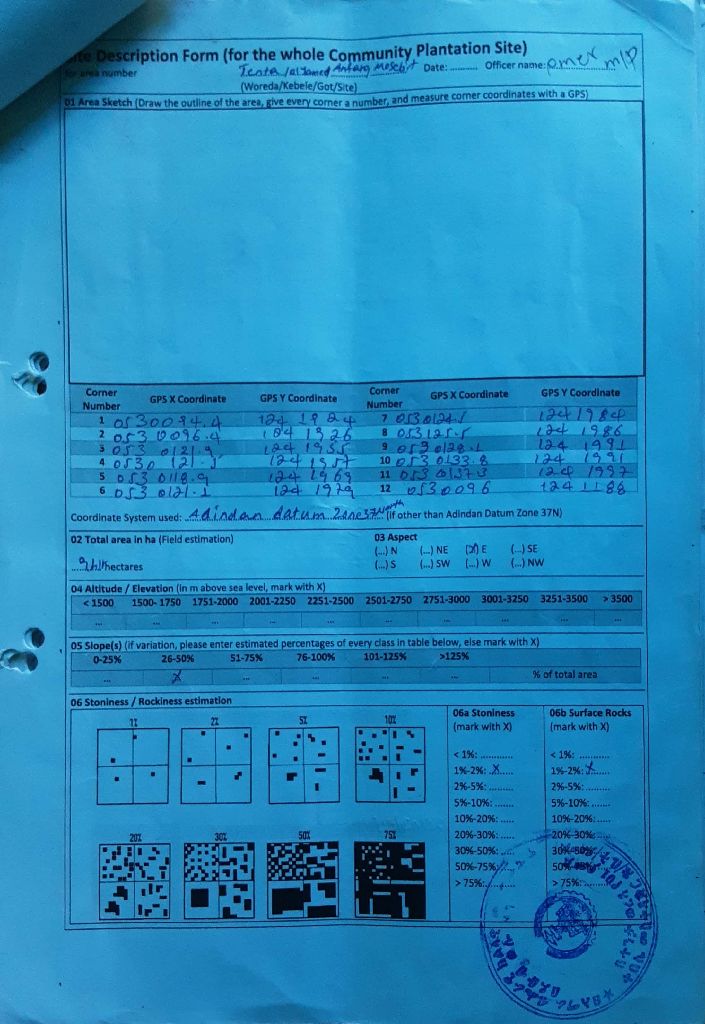 te Description Form (for the whole Community Plantation Site)
for area number Tenta Date: .......... Officer name:
(Woreda/Kebele/Got/Site)
01 Area Sketch (Draw the outline of the area, give every corner a number, and measure corner coordinates with a GPS)
Corner Number GPS X Coordinate GPS Y Coordinate Corner Number GPS X Coordinate GPS Y Coordinate
1 0530094.4 124 1924 7 0530124.1 1241984
2 0530096.4 124 1926 8 053125.5 124 1986
3 053 0121.9 124 1955 9 0530128.1 124 1991
4 0530 121.5 124 1957 10 0530133.8 124 1991
5 053 0118.9 124 1969 11 053 0137.3 124 1997
6 053 0121.1 124 1979 12 0530096 124 1188
Coordinate System used: Adindan datum zone37 north (if other than Adindan Datum Zone 37N)
02 Total area in ha (Field estimation) 03 Aspect
hectares
(...) N (...) NE (X) E (...) SE
(...) S (...) SW (...) W (...) NW
04 Altitude / Elevation (in m above sea level, mark with X)
< 1500 1500- 1750 1751-2000 2001-2250 2251-2500 2501-2750 2751-3000 3001-3250 3251-3500 > 3500
... ... ... ... ... ... ... ... ... ...
05 Slope(s) (if variation, please enter estimated percentages of every class in table below, else mark with X)
0-25% 26-50% 51-75% 76-100% 101-125% >125%
... X ... ... ... ... % of total area
06 Stoniness / Rockiness estimation
06a Stoniness (mark with X) 06b Surface Rocks (mark with X)
1% 2% 5% 10%
< 1%: ............ < 1%: ............
1%-2%: ..X..... 1%-2%: .X.....
2%-5%: ......... 2%-5%: .........
5%-10%: ....... 5%-10%: .......
10%-20%: ..... 10%-20%: .....
20% 30% 50% 75%
20%-30%: ..... 20%-30%: .....
30%-50%: ..... 30%-50%:
50%-75%: 50%-75%:
> 75%: > 75%: